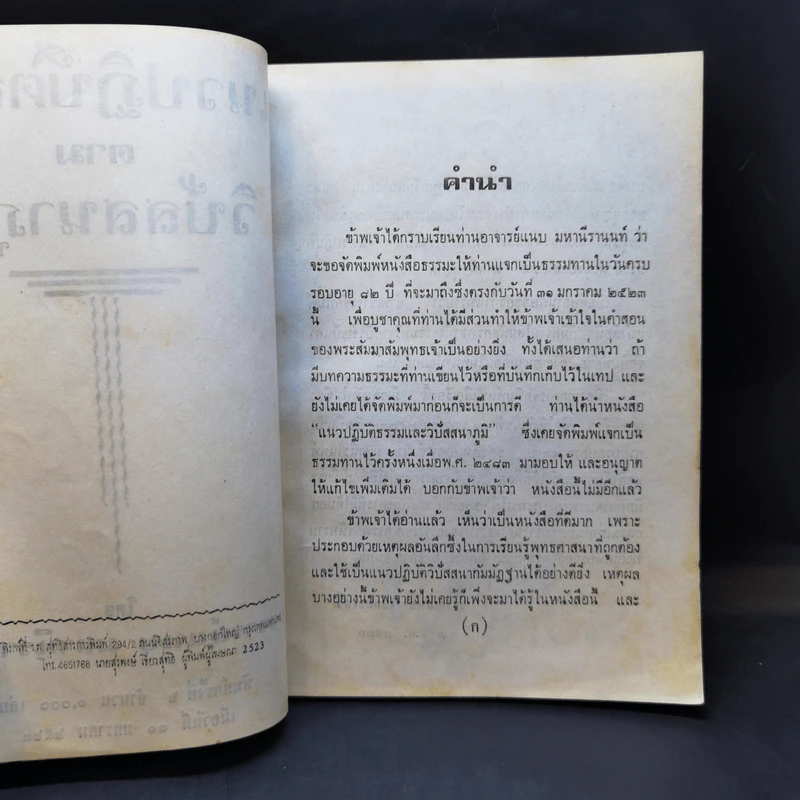 แนวปฏิบัติ
ตาม
วิปัสสนาภู
โดย
294/2 ถนนอิสรภาพ บางกอกใหญ่
โทร.4651768 นายสุรพงษ์ เชี่ยวสุทธิ ผู้พิมพ์ผู้โฆษณา 2523
พิมพ์ครั้งที่ ๒ จำนวน ๑,๐๐๐ เล่ม
เมื่อวันที่ ๓๐ มกราคม ๒๕๒๓
คำนำ
ข้าพเจ้าได้กราบเรียนท่านอาจารย์แนบ มหานีรานนท์ ว่า
จะขอจัดพิมพ์หนังสือธรรมะให้ท่านแจกเป็นธรรมทานในวันครบ
รอบอายุ ๘๒ ปี ที่จะมาถึงซึ่งตรงกับวันที่ ๓๑ มกราคม ๒๕๒๓
นี้ เพื่อบูชาคุณที่ท่านได้มีส่วนทำให้ข้าพเจ้าเข้าใจในคำสอน
ของพระสัมมาสัมพุทธเจ้าเป็นอย่างยิ่ง ทั้งได้เสนอท่านว่า ถ้า
มีบทความธรรมะที่ท่านเขียนไว้หรือที่บันทึกเก็บไว้ในเทป และ
ยังไม่เคยได้จัดพิมพ์มาก่อนก็จะเป็นการดี ท่านได้นำหนังสือ
“แนวปฏิบัติธรรมและวิปัสสนาภูมิ” ซึ่งเคยจัดพิมพ์แจกเป็น
ธรรมทานไว้ครั้งหนึ่งเมื่อพ.ศ. ๒๔๘๓ มามอบให้ และอนุญาต
ให้แก้ไขเพิ่มเติมได้ บอกกับข้าพเจ้าว่า หนังสือนี้ไม่มีอีกแล้ว
ข้าพเจ้าได้อ่านแล้ว เห็นว่าเป็นหนังสือที่ดีมาก เพราะ
ประกอบด้วยเหตุผลอันลึกซึ้งในการเรียนรู้พุทธศาสนาที่ถูกต้อง
และใช้เป็นแนวปฏิบัติวิปัสสนากัมมัฏฐานได้อย่างดียิ่ง เหตุผล
บางอย่างนี้ข้าพเจ้ายังไม่เคยรู้ก็เพิ่งจะมาได้รู้ในหนังสือนี้ และ
(ก)